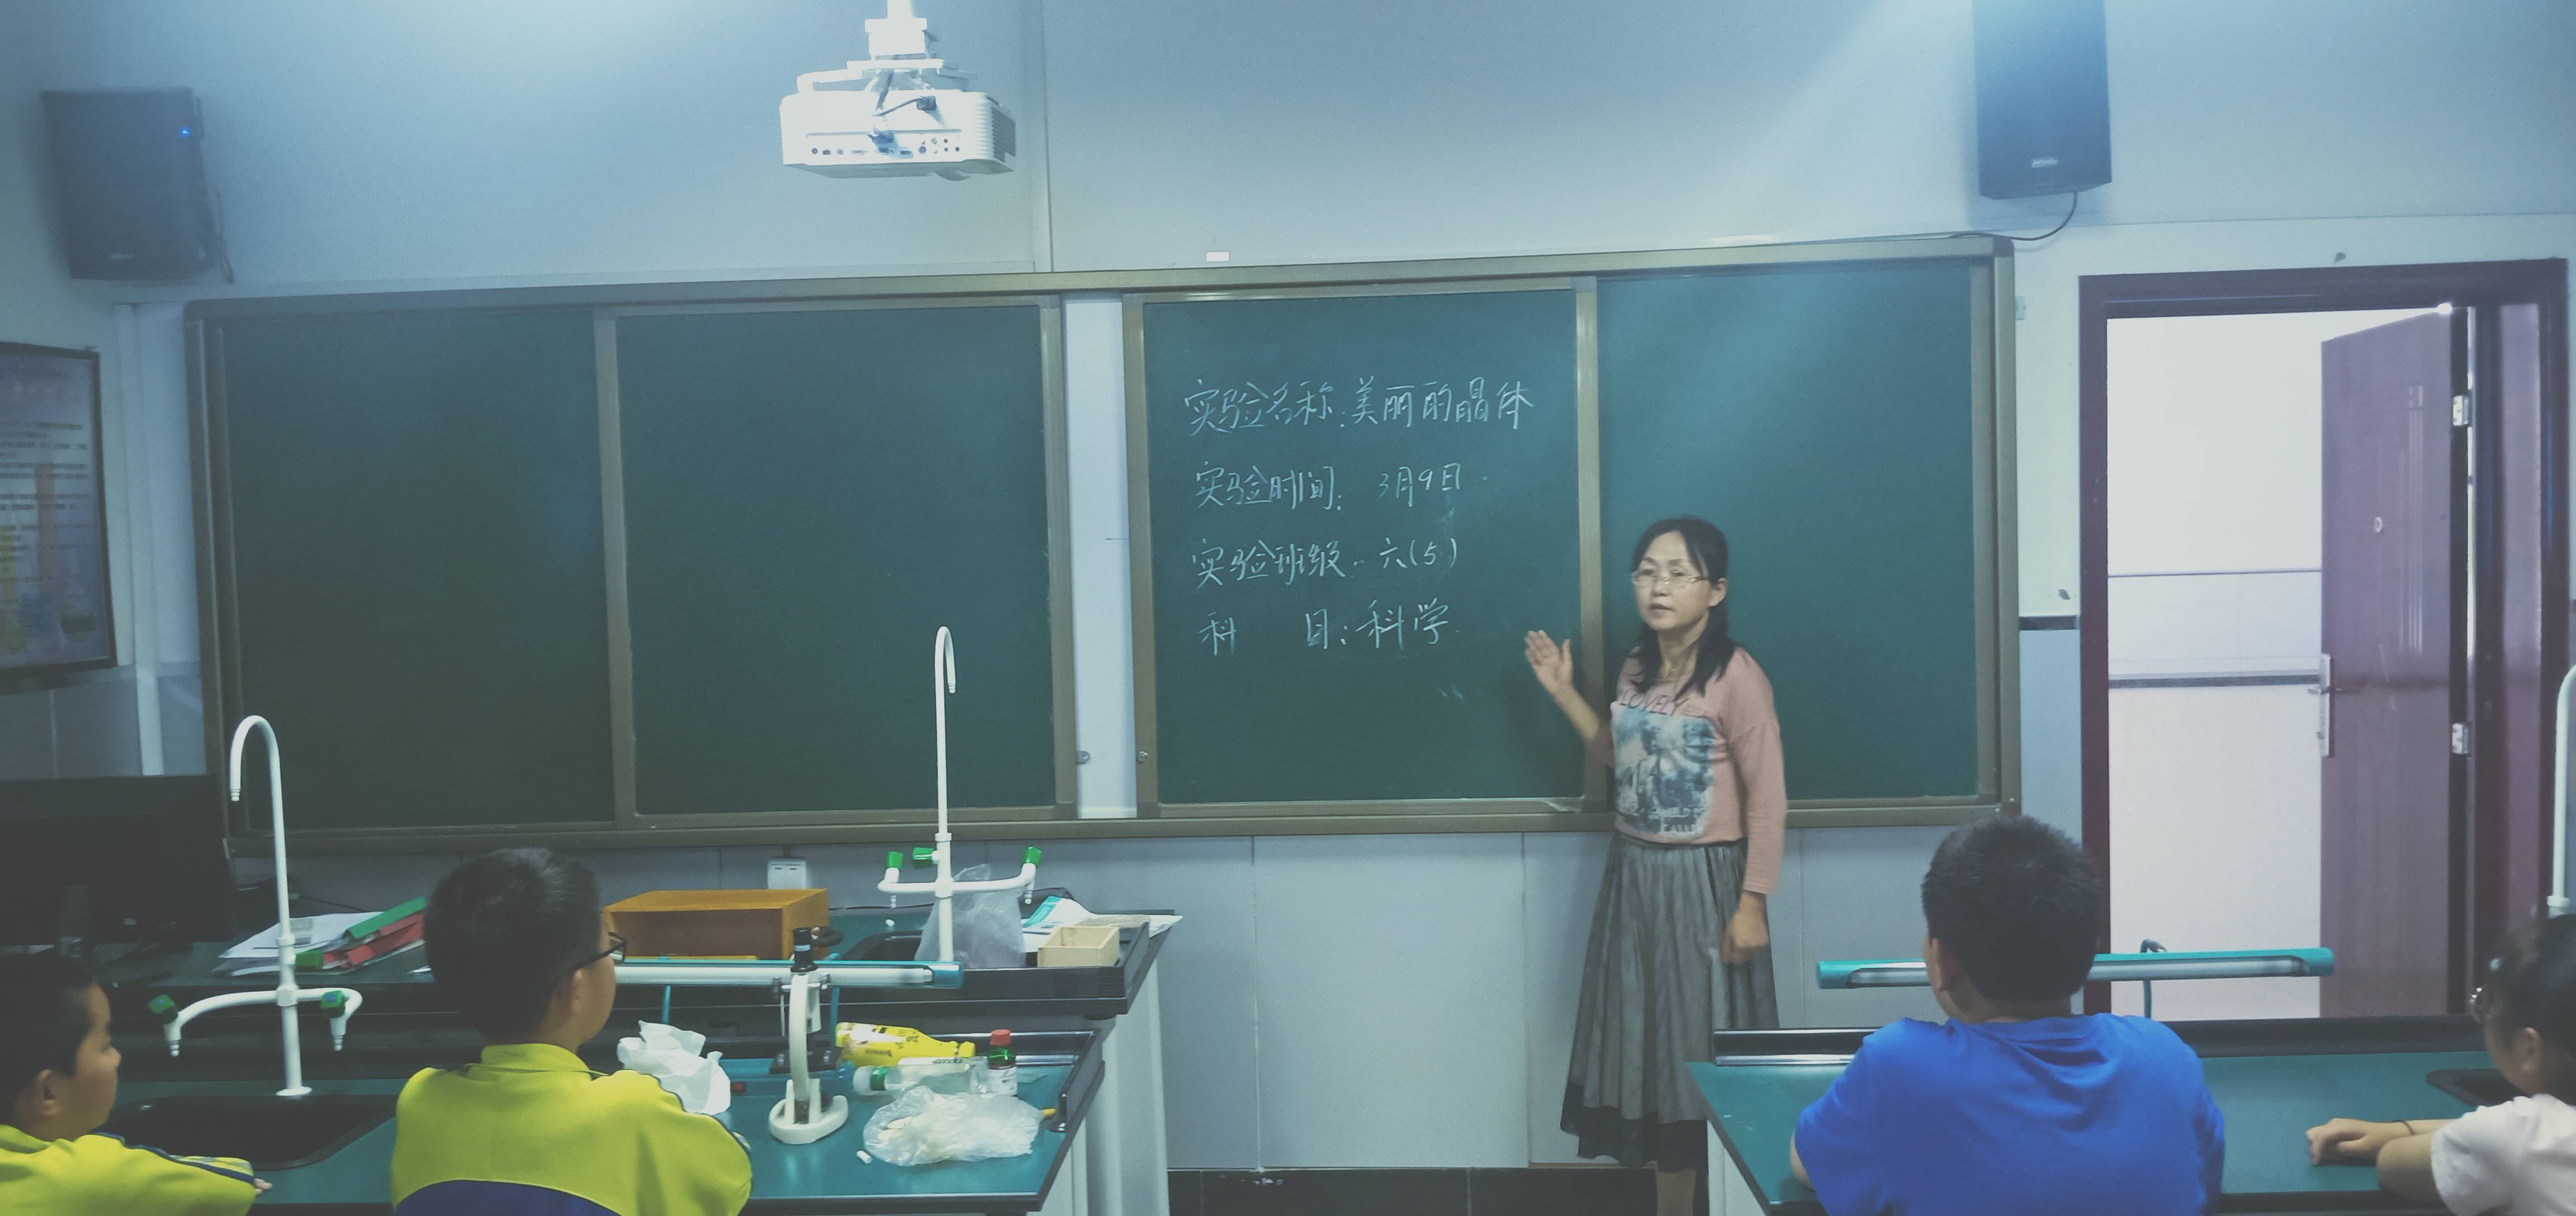 实验名称:美丽的晶体
实验时间: 3月9日
实验班级: 六(5)
科 目:科学
LOVELY